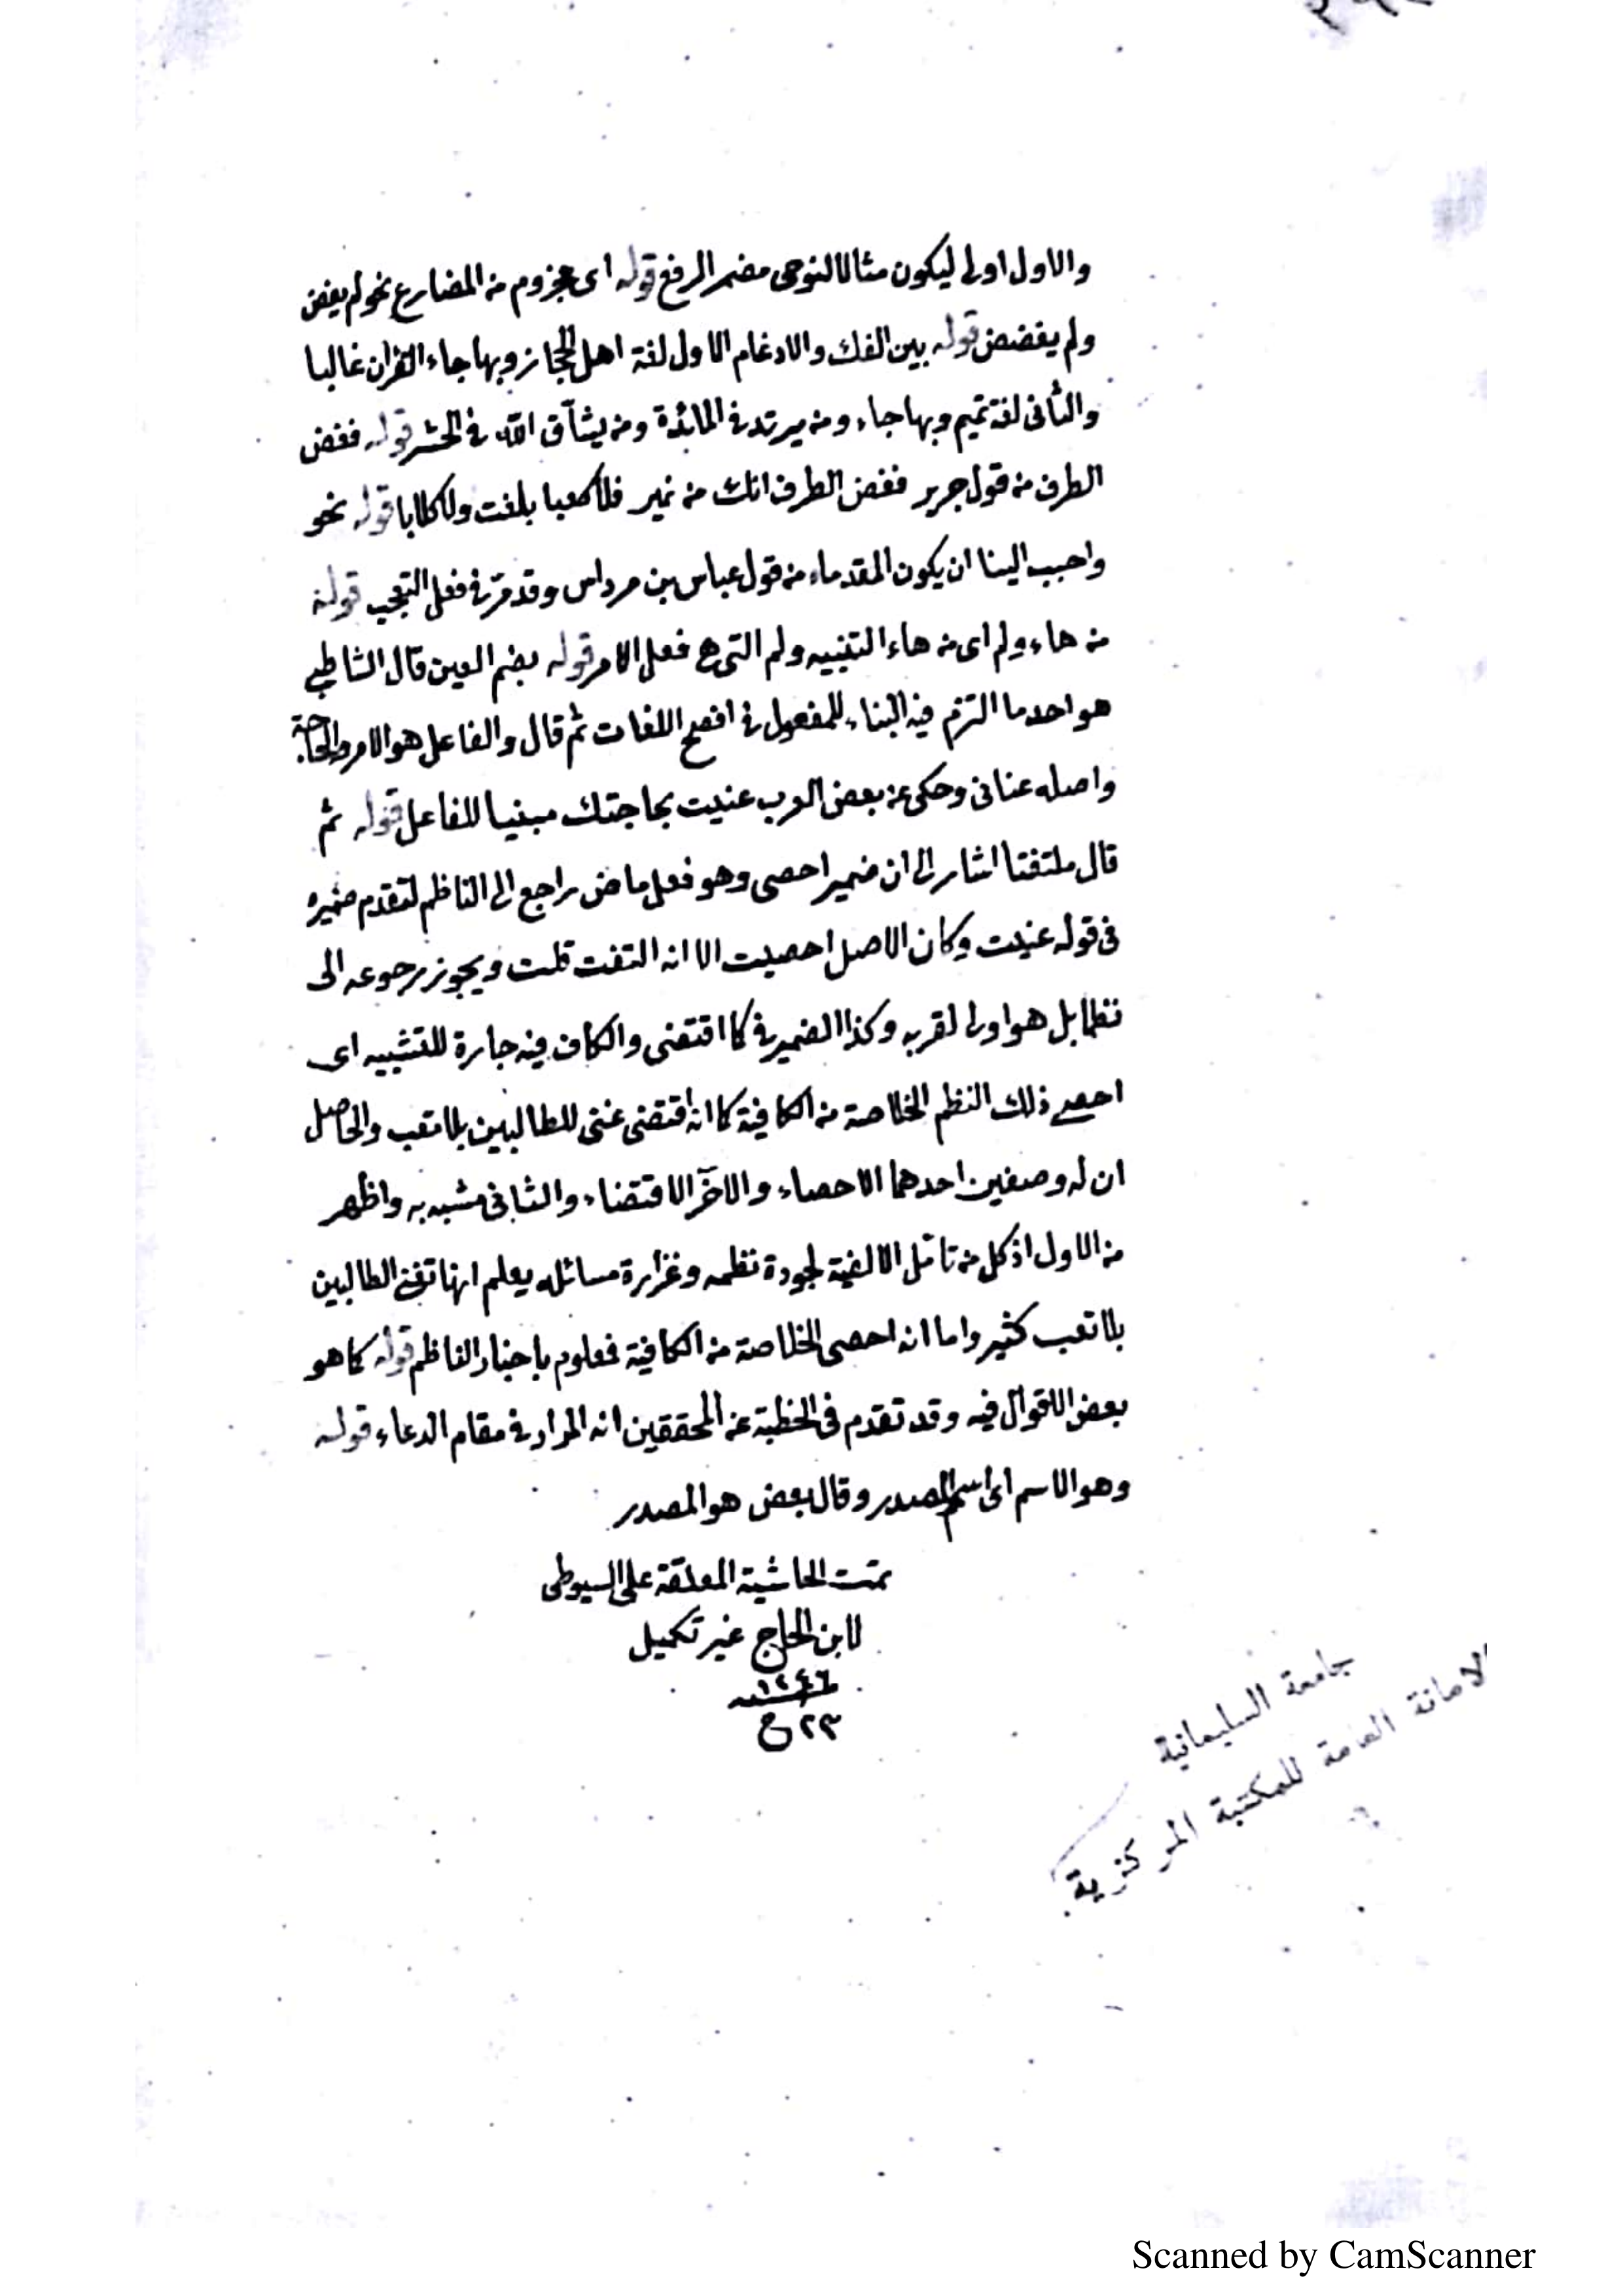 والاول اولى ليكون مثالا لنوعى مضمر الرفع قوله اى مجزوم من المضارع نحو لم يغض
ولم يغضض قوله بين الفك والادغام الاول لغة اهل الحجاز وبها جاء القرآن غالبا
والثانى لغة تميم وبها جاء ومن يرتد فى المائدة ومن يشآق الله فى الحشر قوله فغض
الطرف من قول جرير فغض الطرف انك من نمير فلا كعبا بلغت ولا كلابا قوله نحو
واحبب الينا ان يكون المقدماء من قول عباس بن مرداس وقد مرّ فى فعل التعجب قوله
من هاء ولم اى من هاء التنبيه ولم التى هى فعل الامر قوله بضم العين قال الشاطبى
هو احد ما التزم فيه البناء للمفعول فى افصح اللغات ثم قال والفاعل هو الامر والحاجة
واصله عنانى وحكى عن بعض العرب عنيت بحاجتك مبنيا للفاعل قوله ثم
قال ملتفتا اشار الى ان ضمير احصى وهو فعل ماض راجع الى الناظم لتقدم ضميره
فى قوله عنيت وكان الاصل احصيت الا انه التفت قلت ويجوز رجوعه الى
نظما بل هو اولى لقربه وكذا الضمير فى كما اقتضى والكاف فيه جارة للتشبيه اى
احصى ذلك النظم الخلاصة من الكافية كما انه اقتضى غنى للطالبين بلا تعب والحاصل
ان له وصفين احدهما الاحصاء والآخر الاقتضاء والثانى مشبه به واظهر
من الاول اذ كل من تأمّل الالفية لجودة نظمه وغزارة مسائله يعلم انها تغنى الطالبين
بلا تعب كثير واما انه احصى الخلاصة من الكافية فمعلوم باخبار الناظم قوله كما هو
بعض الاقوال فيه وقد تقدم فى الخطبة عن المحققين انه المراد فى مقام الدعاء قوله
وهو الاسم اى اسم المصدر وقال بعض هو المصدر
تمت الحاشية المعلقة على السيوطى
لابن الحاج غير تكميل
١٢٤٦
٢٣ ج
جامعة السليمانية
الامانة العامة للمكتبة المركزية
Scanned by CamScanner